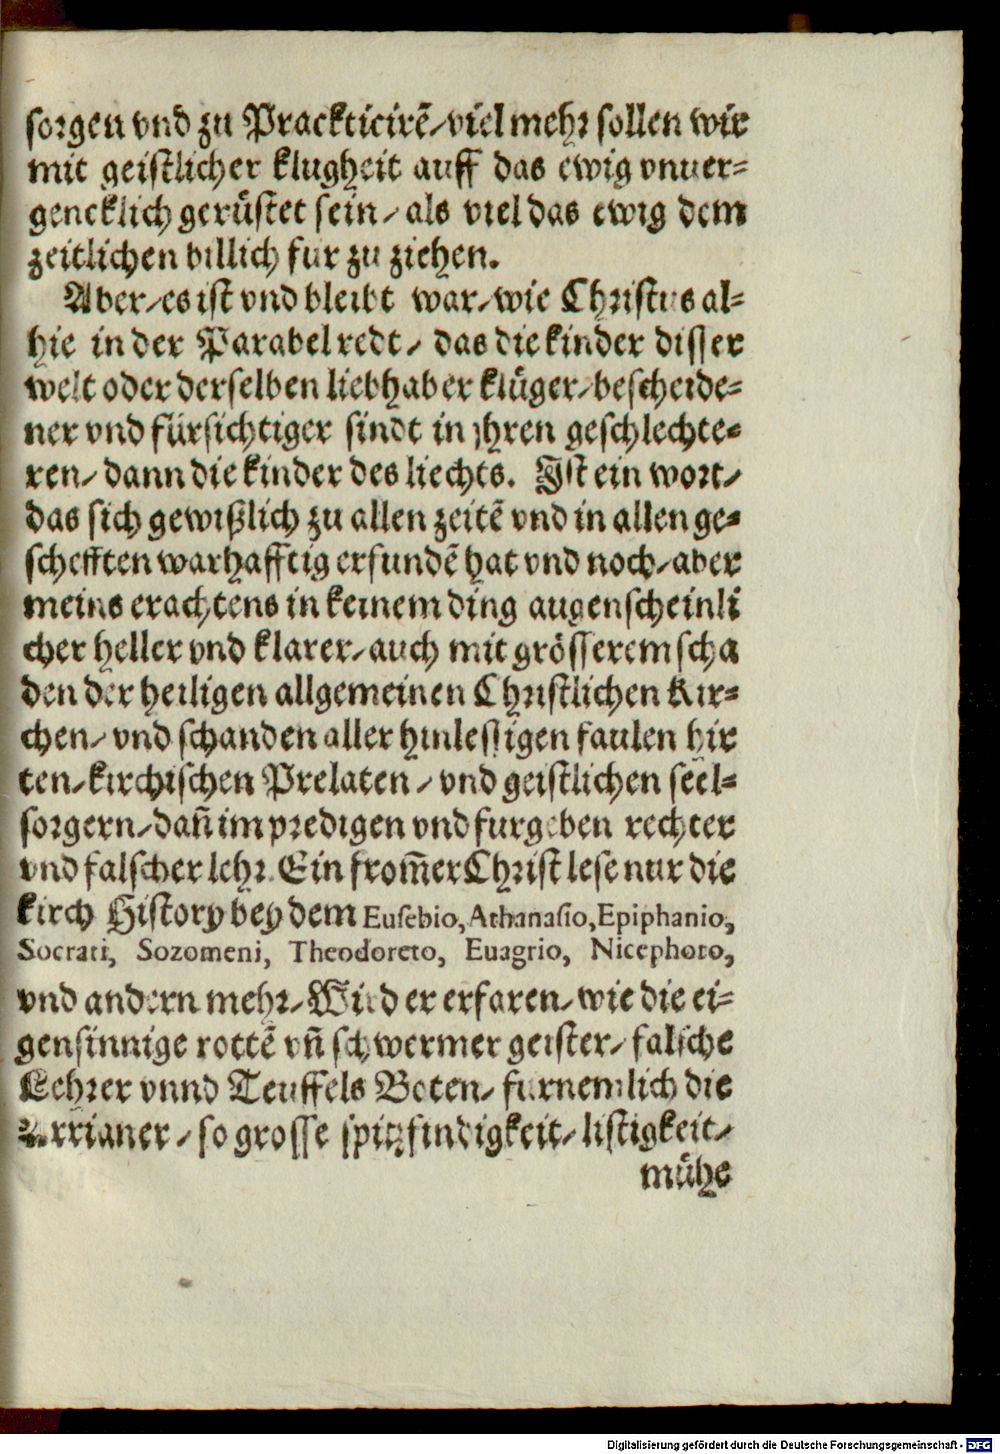 sorgen vnd zu Prackticirẽ / viel mehr sollen wir
mit geistlicher klugheit auff das ewig vnuer=
gencklich gerüstet sein / als viel das ewig dem
zeitlichen billich fur zu ziehen.
Aber / es ist vnd bleibt war / wie Christus al=
hie in der Parabel redt / das die kinder disser
welt oder derselben liebhaber klüger / bescheide=
ner vnd fürsichtiger sindt in jhren geschlechte=
ren / dann die kinder des liechts. Ist ein wort /
das sich gewißlich zu allen zeitẽ vnd in allen ge=
schefften warhafftig erfundẽ hat vnd noch / aber
meins erachtens in keinem ding augenscheinli
cher heller vnd klarer / auch mit grösserem scha
den der heiligen allgemeinen Christlichen Kir=
chen / vnd schanden aller hinlessigen faulen hir
ten / kirchischen Prelaten / vnd geistlichen seel=
sorgern / dañ im predigen vnd furgeben rechter
vnd falscher lehr. Ein from̃er Christ lese nur die
kirch History bey dem Eusebio, Athanasio, Epiphanio,
Socrati, Sozomeni, Theodoreto, Euagrio, Nicephoro,
vnd andern mehr / Wird er erfaren / wie die ei=
gensinnige rottẽ vñ schwermer geister / falsche
Lehrer vnnd Teuffels Boten / furnemlich die
Arrianer / so grosse spitzfindigkeit / listigkeit /
mühe
Digitalisierung gefördert durch die Deutsche Forschungsgemeinschaft - DFG